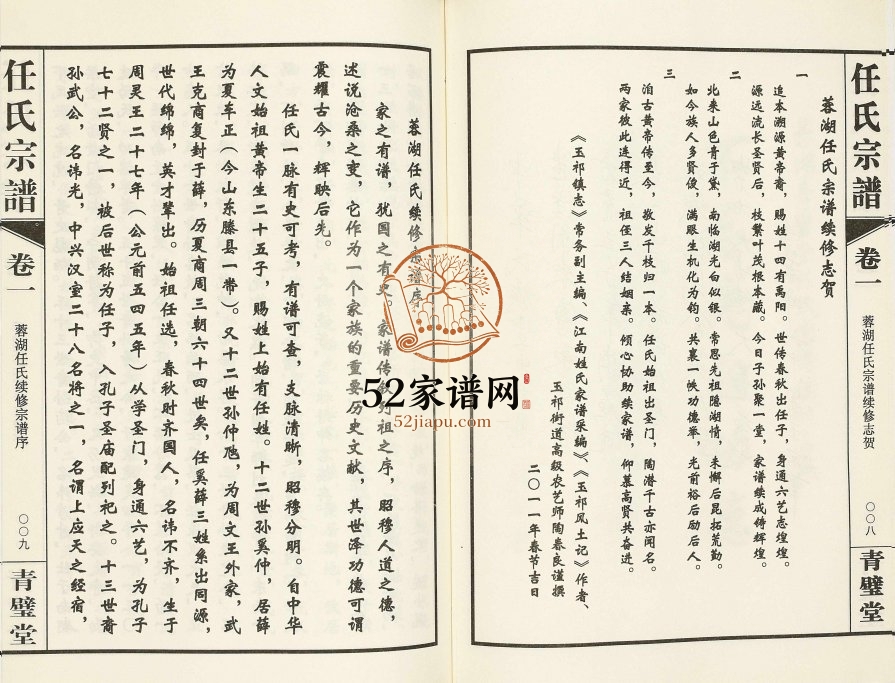 任氏宗譜
卷一
蓉湖任氏宗谱续修志贺
〇〇八
青璧堂
蓉湖任氏宗谱续修志贺
一
追本溯源黄帝裔，赐姓十四有禹阳。世传春秋出任子，身通六艺志煌煌。
源远流长圣贤后，枝繁叶茂根本藏。今日子孙聚一堂，家谱续成铸辉煌。
二
北来山色青于黛，南临湖光白似银。常思先祖隐湖情，未懈后昆拓荒勤。
如今族人多贤俊，满眼生机化为钧。共襄一帙功德举，光前裕后励后人。
三
洎古黄帝传至今，散发千枝归一本。任氏始祖出圣门，陶潜千古亦闻名。
两家彼此连得近，祖侄三人结姻亲。倾心协助续家谱，仰慕高贤共奋进。
《玉祁镇志》常务副主编、《江南姓氏家谱采编》、《玉祁风土记》作者、
玉祁街道高级农艺师陶春良谨撰
二〇一一年春节吉日
蓉湖任氏续修宗谱序
家之有谱，犹国之有史。家谱传叙列祖之序，昭穆人道之德，
述说沧桑之变，它作为一个家族的重要历史文献，其世泽功德可谓
震耀古今，辉映后先。
任氏一脉有史可考，有谱可查，支脉清晰，昭穆分明。自中华
人文始祖黄帝生二十五子，赐姓上始有任姓。十二世孙奚仲，居薛
为夏车正（今山东滕县一带）。又十二世孙仲虺，为周文王外家，武
王克商复封于薛，历夏商周三朝六十四世矣，任奚薛三姓系出同源，
世代绵绵，英才辈出。始祖任选，春秋时齐国人，名讳不齐，生于
周灵王二十七年（公元前五四五年）从学圣门，身通六艺，为孔子
七十二贤之一，被后世称为任子，入孔子圣庙配列祀之。十三世裔
孙武公，名讳光，中兴汉室二十八名将之一，名谓上应天之经宿，
任氏宗譜
卷一
蓉湖任氏续修宗谱序
〇〇九
青璧堂
52家谱网
52jiapu.com